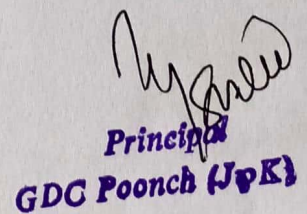 Principal
GDC Poonch (J&K)